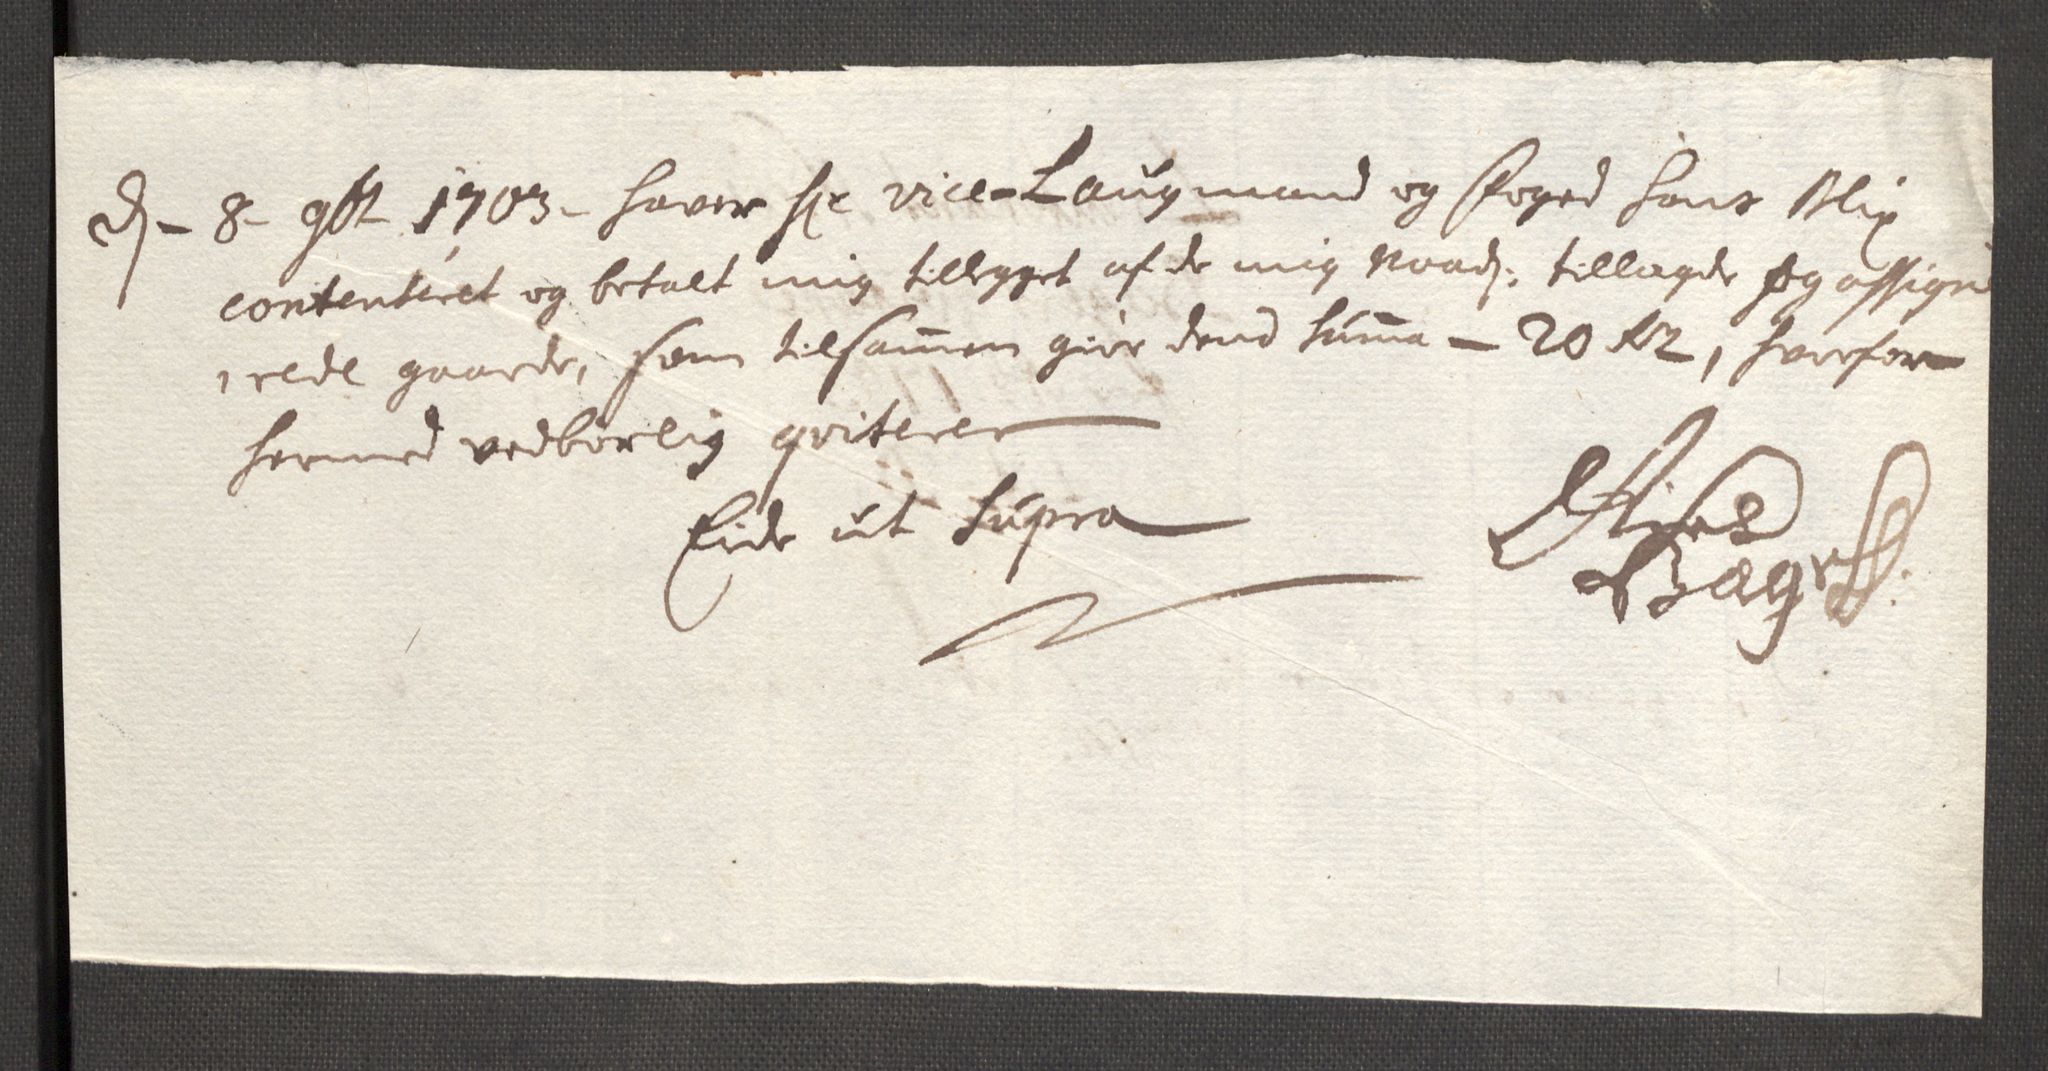 D. - 8 - 9bt 1703 - haver hr vice-Laugmand og Foged Hans Blix
contenteret og betalt mig tillegget af de mig naad: tillagde og assigne
rede gaarde, som tilsamen giør dend Suma - 20 rdr, hvorfor
hermed vedbørlig qviterer
Eide ut Supra
Hagerup.